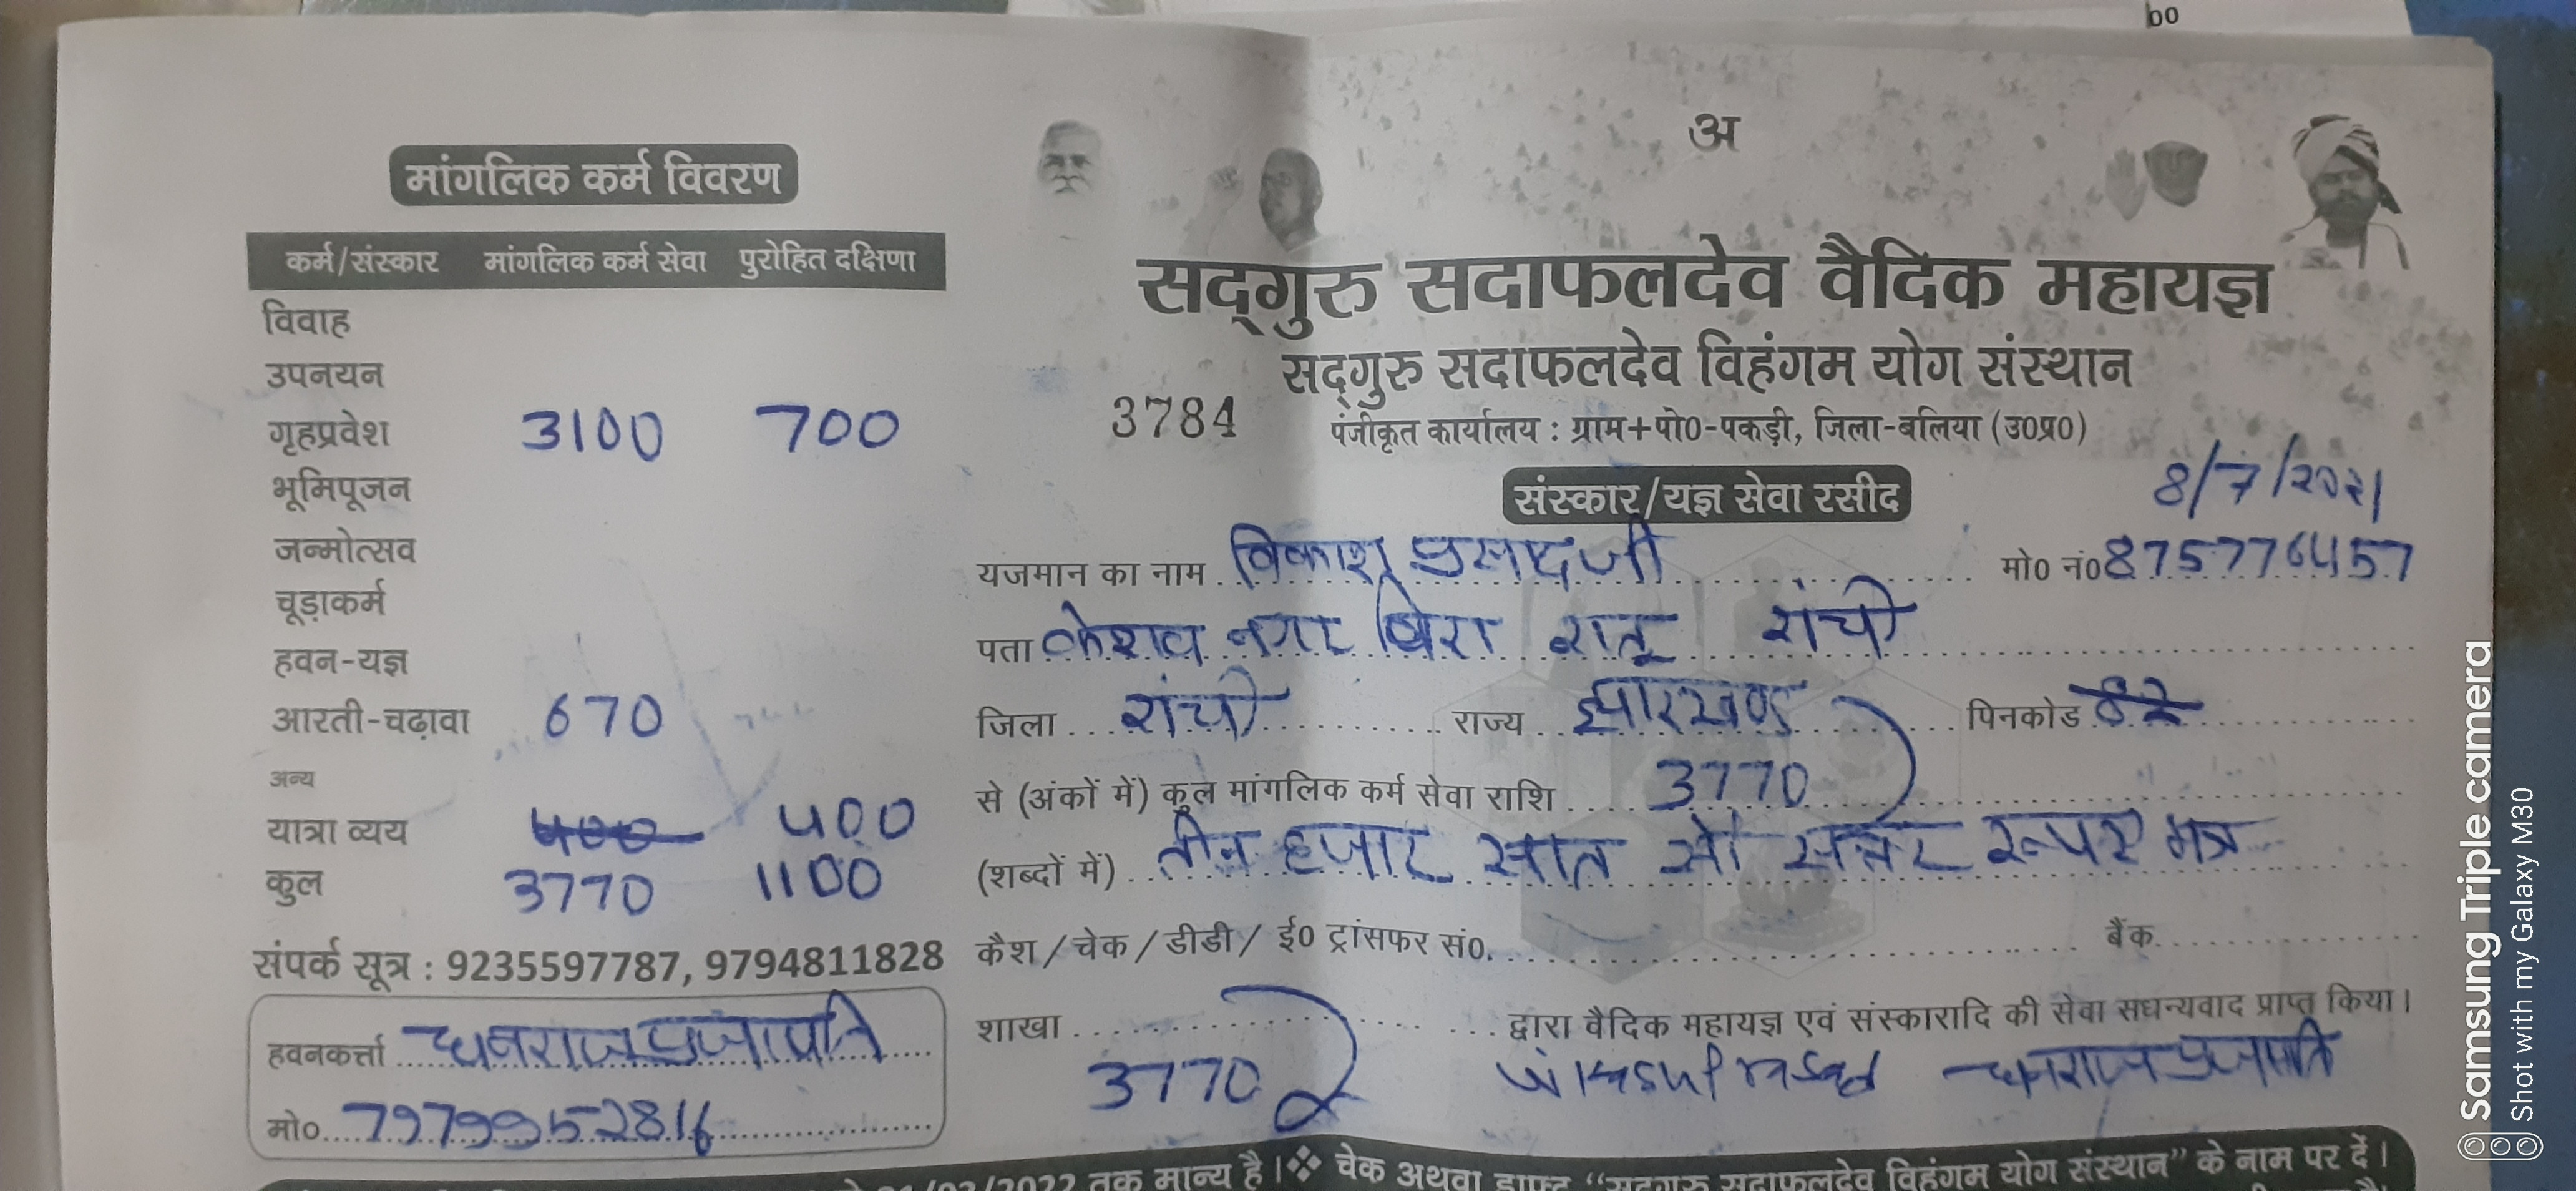 bo
मांगलिक कर्म विवरण
कर्म/संस्कार मांगलिक कर्म सेवा पुरोहित दक्षिणा
विवाह
उपनयन
गृहप्रवेश 3100 700
भूमिपूजन
जन्मोत्सव
चूड़ाकर्म
हवन-यज्ञ
आरती-चढ़ावा 670
अन्य
यात्रा व्यय 400 400
कुल 3770 1100
संपर्क सूत्र : 9235597787, 9794811828
हवनकर्त्ता धनराज प्रजापति
मो०
अ
सद्गुरु सदाफलदेव वैदिक महायज्ञ
सद्गुरु सदाफलदेव विहंगम योग संस्थान
3784 पंजीकृत कार्यालय : ग्राम+पो०-पकड़ी, जिला-बलिया (उ०प्र०)
संस्कार/यज्ञ सेवा रसीद 8/7/2021
यजमान का नाम विकाश प्रसाद जी मो० नं० 8757764157
पता केशव नगर रातू रांची
जिला रांची राज्य झारखण्ड पिनकोड 82
से (अंकों में) कुल मांगलिक कर्म सेवा राशि 3770
(शब्दों में) तीन हजार सात सौ सत्तर रूपए मात्र
कैश / चेक / डीडी / ई० ट्रांसफर सं०. बैंक
शाखा द्वारा वैदिक महायज्ञ एवं संस्कारादि की सेवा सधन्यवाद प्राप्त किया।
3770 धनराज प्रजापति
/2022 तक मान्य है। ❖ चेक अथवा ड्राफ्ट “सद्गुरु सदाफलदेव विहंगम योग संस्थान” के नाम पर दें।
Samsung Triple camera
Shot with my Galaxy M30